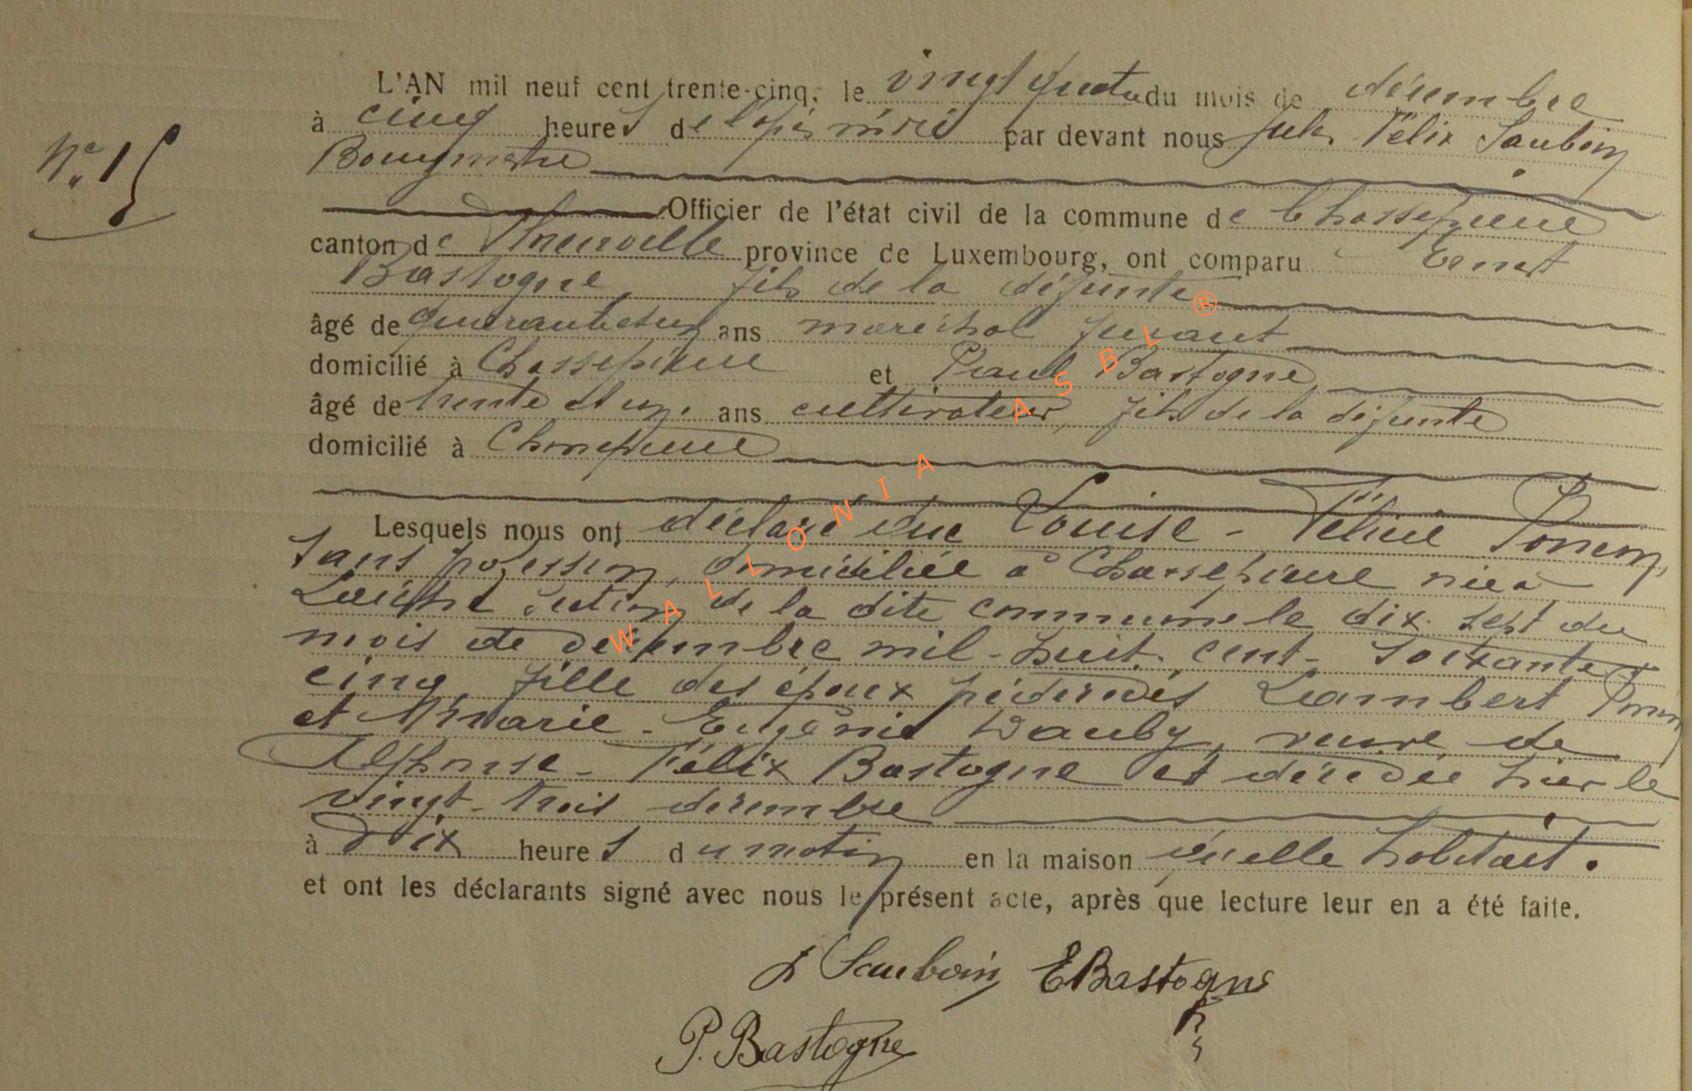 N° 15
L'AN mil neuf cent trente-cinq, le vingt quatre du mois de décembre
à cinq heures de l'après midi par devant nous Jules Félix Sauboin
Bourgmestre
Officier de l'état civil de la commune de Chassepierre
canton de Florenville province de Luxembourg, ont comparu Ernest
Bastogne, fils de la défunte
âgé de quarante et un ans maréchal ferrant
domicilié à Chassepierre et Paul Bastogne,
âgé de trente et un ans cultivateur, fils de la défunte
domicilié à Chassepierre
Lesquels nous ont déclaré que Louise - Félicie Poncin,
sans profession, domiciliée à Chassepierre née à
Laiche section de la dite commune le dix sept du
mois de décembre mil-huit cent-soixante
cinq, fille des époux prédécédés Lambert Poncin
et Marie - Eugénie Dauby, veuve de
Alphonse - Félix Bastogne est décédée hier le
vingt-trois décembre
à dix heures du matin en la maison qu'elle habitait.
et ont les déclarants signé avec nous le présent acte, après que lecture leur en a été faite.
J Sauboin EBastogne
P. Bastogne
WALLONIA ASBL ®